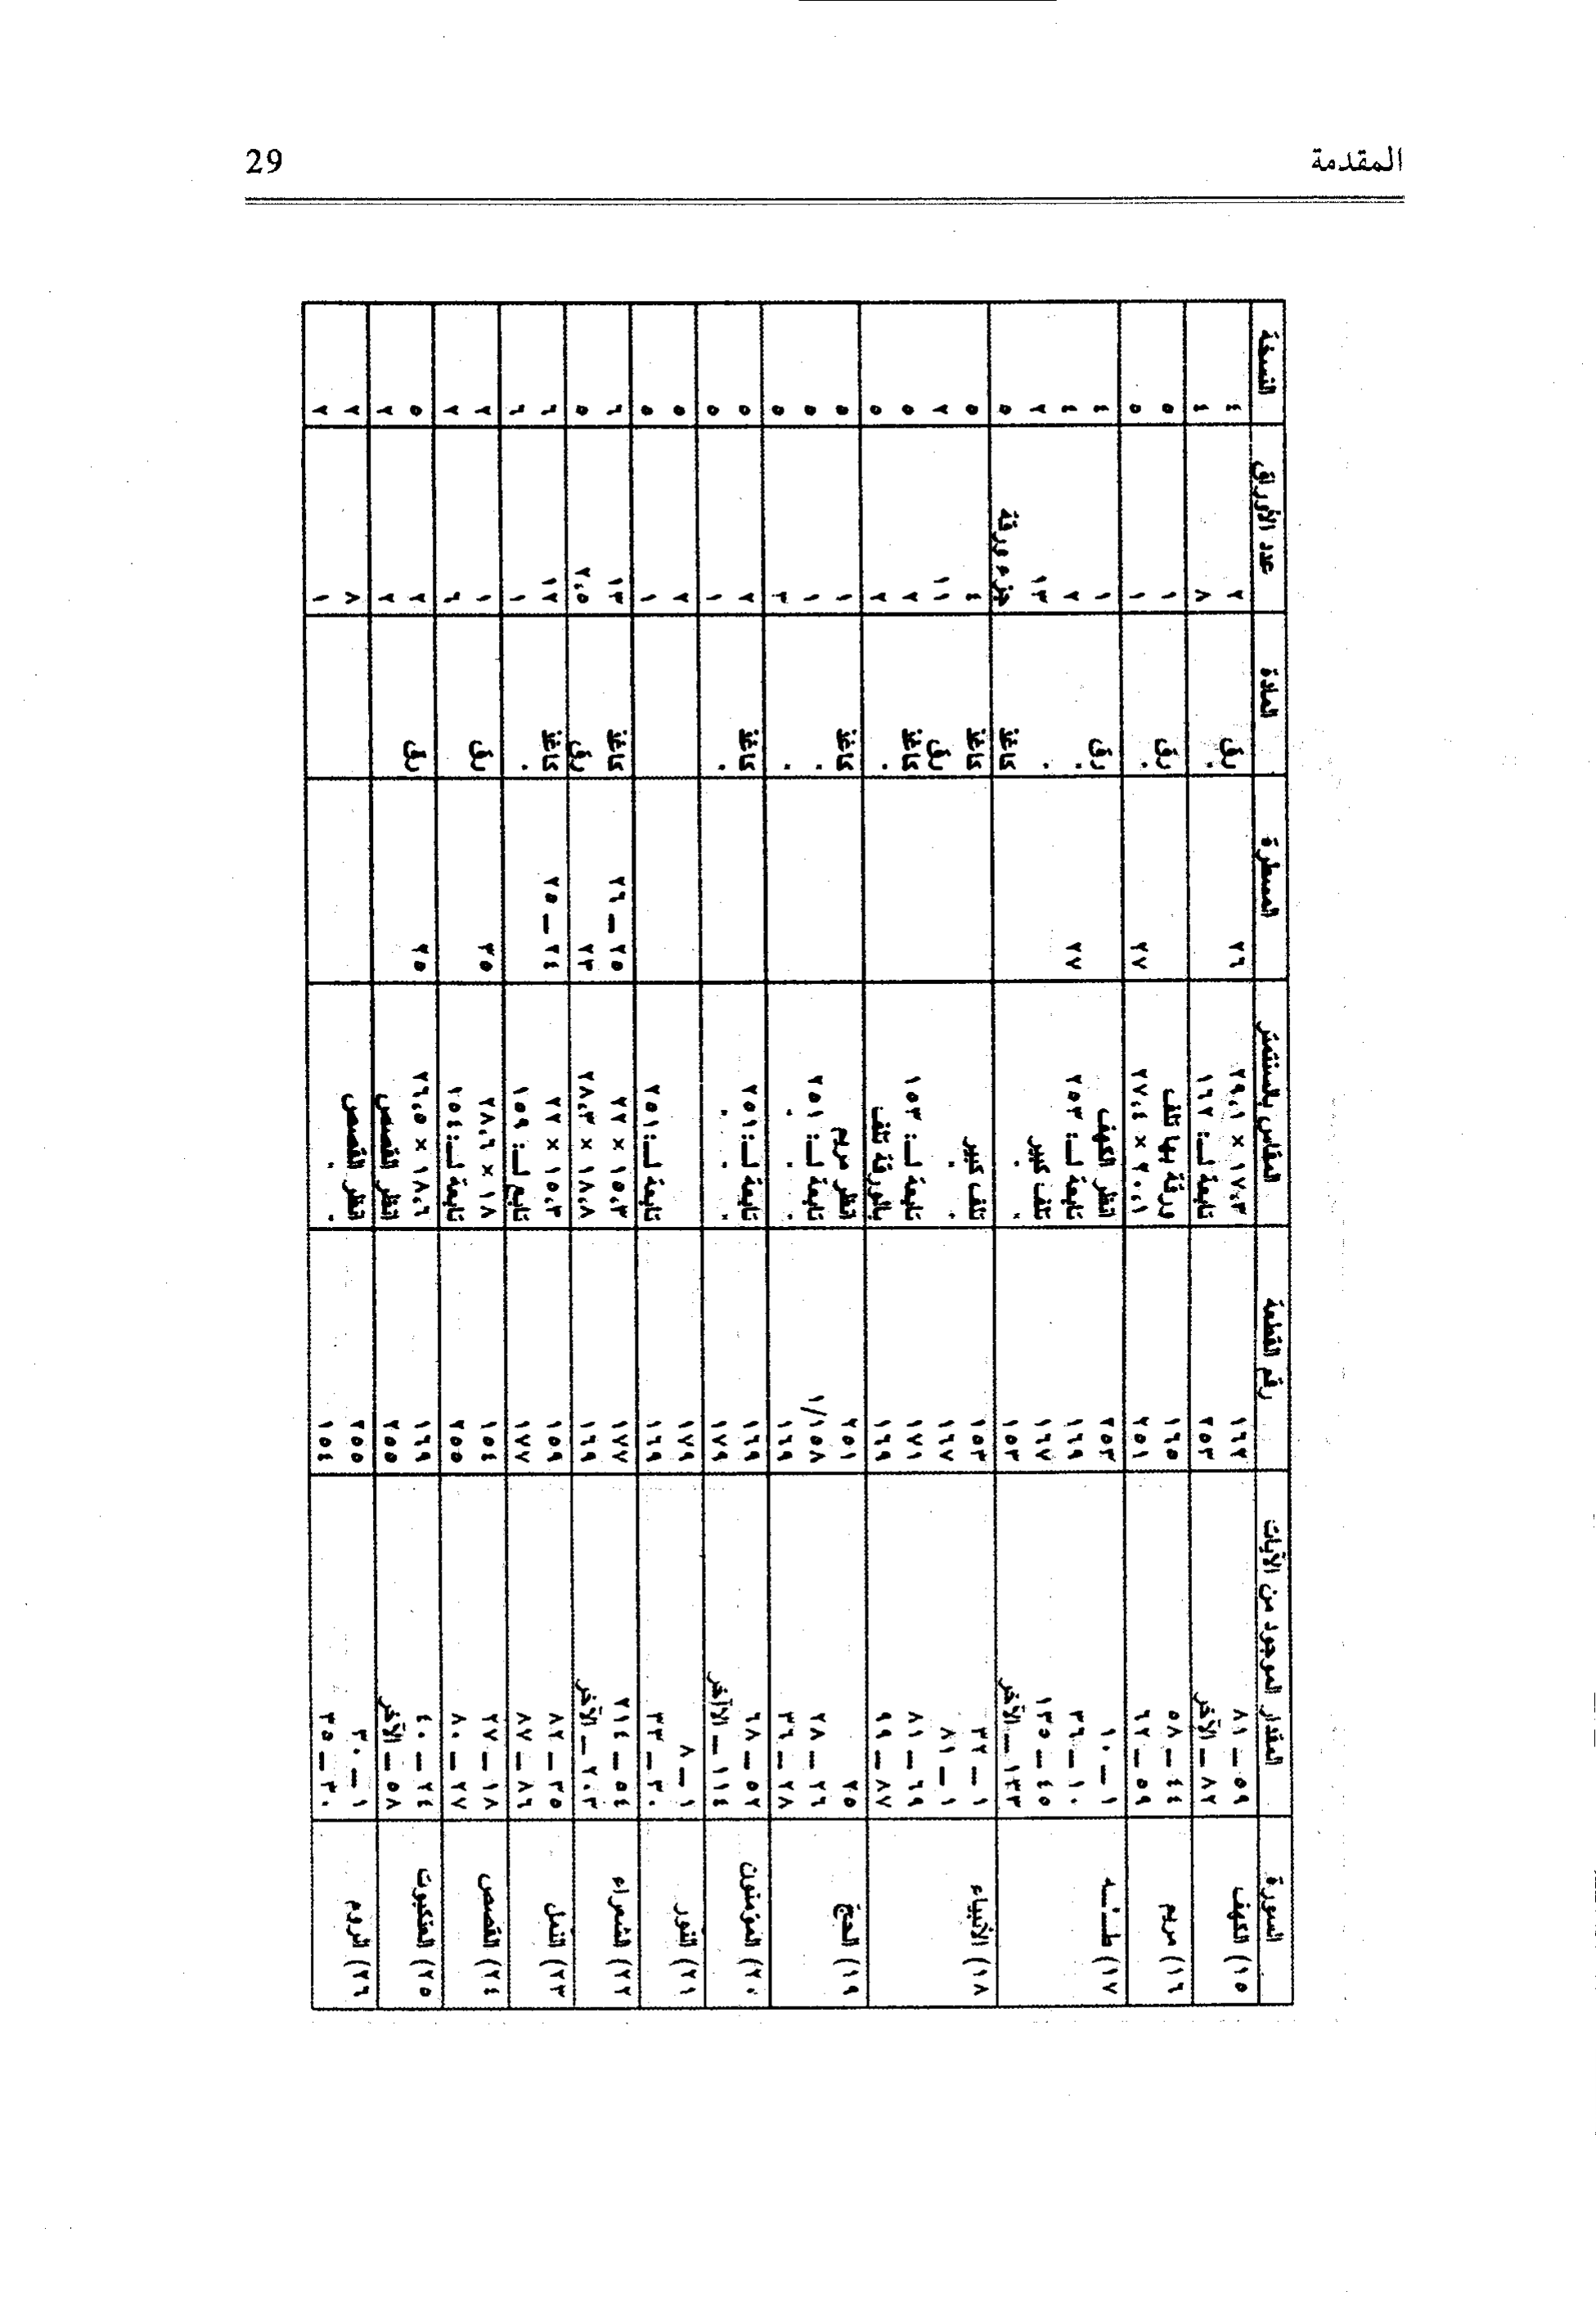 المقدمة 29
السورة المقدار الموجود من الآيات رقم القطعة المقاس بالسنتمتر المسطرة المادة عدد الأوراق النسخة
١٥) الكهف ٥٩ ــ ٨١ ١٦٢ ١٧،٣ × ٢٩،١ ٢٦ رق ٢ ٤
٨٢ ــ الآخر ٢٥٣ تابعة لـ: ١٦٢ . ٨ ٤
١٦) مريم ٤٤ ــ ٥٨ ١٦٥ ورقة بها تلف رق ١ ٥
٥٩ ــ ٦٢ ٢٥١ ٢٠،١ × ٢٧،٤ ٢٧ . ١ ٥
١٧) طـٰـه ١ ــ ١٠ ٢٥٣ انظر الكهف رق ١ ٤
١٠ ــ ٣٦ ١٦٩ تابعة لـ: ٢٥٣ ٢٧ . ٢ ٤
٤٥ ــ ١٣٥ ١٦٧ تلف كبير . ١٣ ٢
١٣٣ ــ الآخر ١٥٣ . . كاغذ جزء ورقة ٥
١٨) الأنبياء ١ ــ ٣٢ ١٥٣ تلف كبير كاغذ ٤ ٥
١ ــ ٨١ ١٦٧ . . رق ١١ ٢
٦٩ ــ ٨١ ١٧١ تابعة لـ: ١٥٣ كاغذ ٢ ٥
٨٧ ــ ٩٩ ١٦٩ بالورقة تلف . ٢ ٥
١٩) الحج ٢٥ ٢٥١ انظر مريم كاغذ ١ ٥
٢٦ ــ ٢٨ ١/١٥٨ تابعة لـ: ٢٥١ . ١ ٥
٢٨ ــ ٣٦ ١٦٩ . . . ٣ ٥
٢٠) المؤمنون ٥٢ ــ ٦٨ ١٦٩ تابعة لـ: ٢٥١ كاغذ ٢ ٥
١١٤ ــ الآخر ١٧٩ . . . . ١ ٥
٢١) النور ١ ــ ٨ ١٧٩ ٢ ٥
٣٠ ــ ٣٣ ١٦٩ تابعة لـ: ٢٥١ ١ ٥
٢٢) الشعراء ٥٤ ــ ٢١٤ ١٧٧ ١٥،٣ × ٢٢ ٢٥ ــ ٢٦ كاغذ ١٣ ٦
٢٠٣ ــ الآخر ١٦٩ ١٨،٨ × ٢٨،٣ ٢٣ رق ٢،٥ ٥
٢٣) النمل ٣٥ ــ ٨٢ ١٥٩ ١٥،٣ × ٢٢ ٢٤ ــ ٢٥ كاغذ ١٢ ٦
٨٦ ــ ٨٧ ١٧٧ تابع لـ: ١٥٩ . ١ ٦
٢٤) القصص ١٨ ــ ٢٧ ١٥٤ ١٨ × ٢٨،٦ ٢٥ رق ١ ٢
٢٧ ــ ٨٠ ٢٥٥ تابعة لـ: ١٥٤ ٦ ٢
٢٥) العنكبوت ٢٤ ــ ٤٠ ١٦٩ ١٨،٦ × ٢٦،٥ ٢٥ رق ٢ ٥
٥٨ ــ الآخر ٢٥٥ انظر القصص ٢ ٢
٢٦) الروم ١ ــ ٣٠ ٢٥٥ انظر القصص ٨ ٢
٣٠ ــ ٣٥ ١٥٤ . . ١ ٢